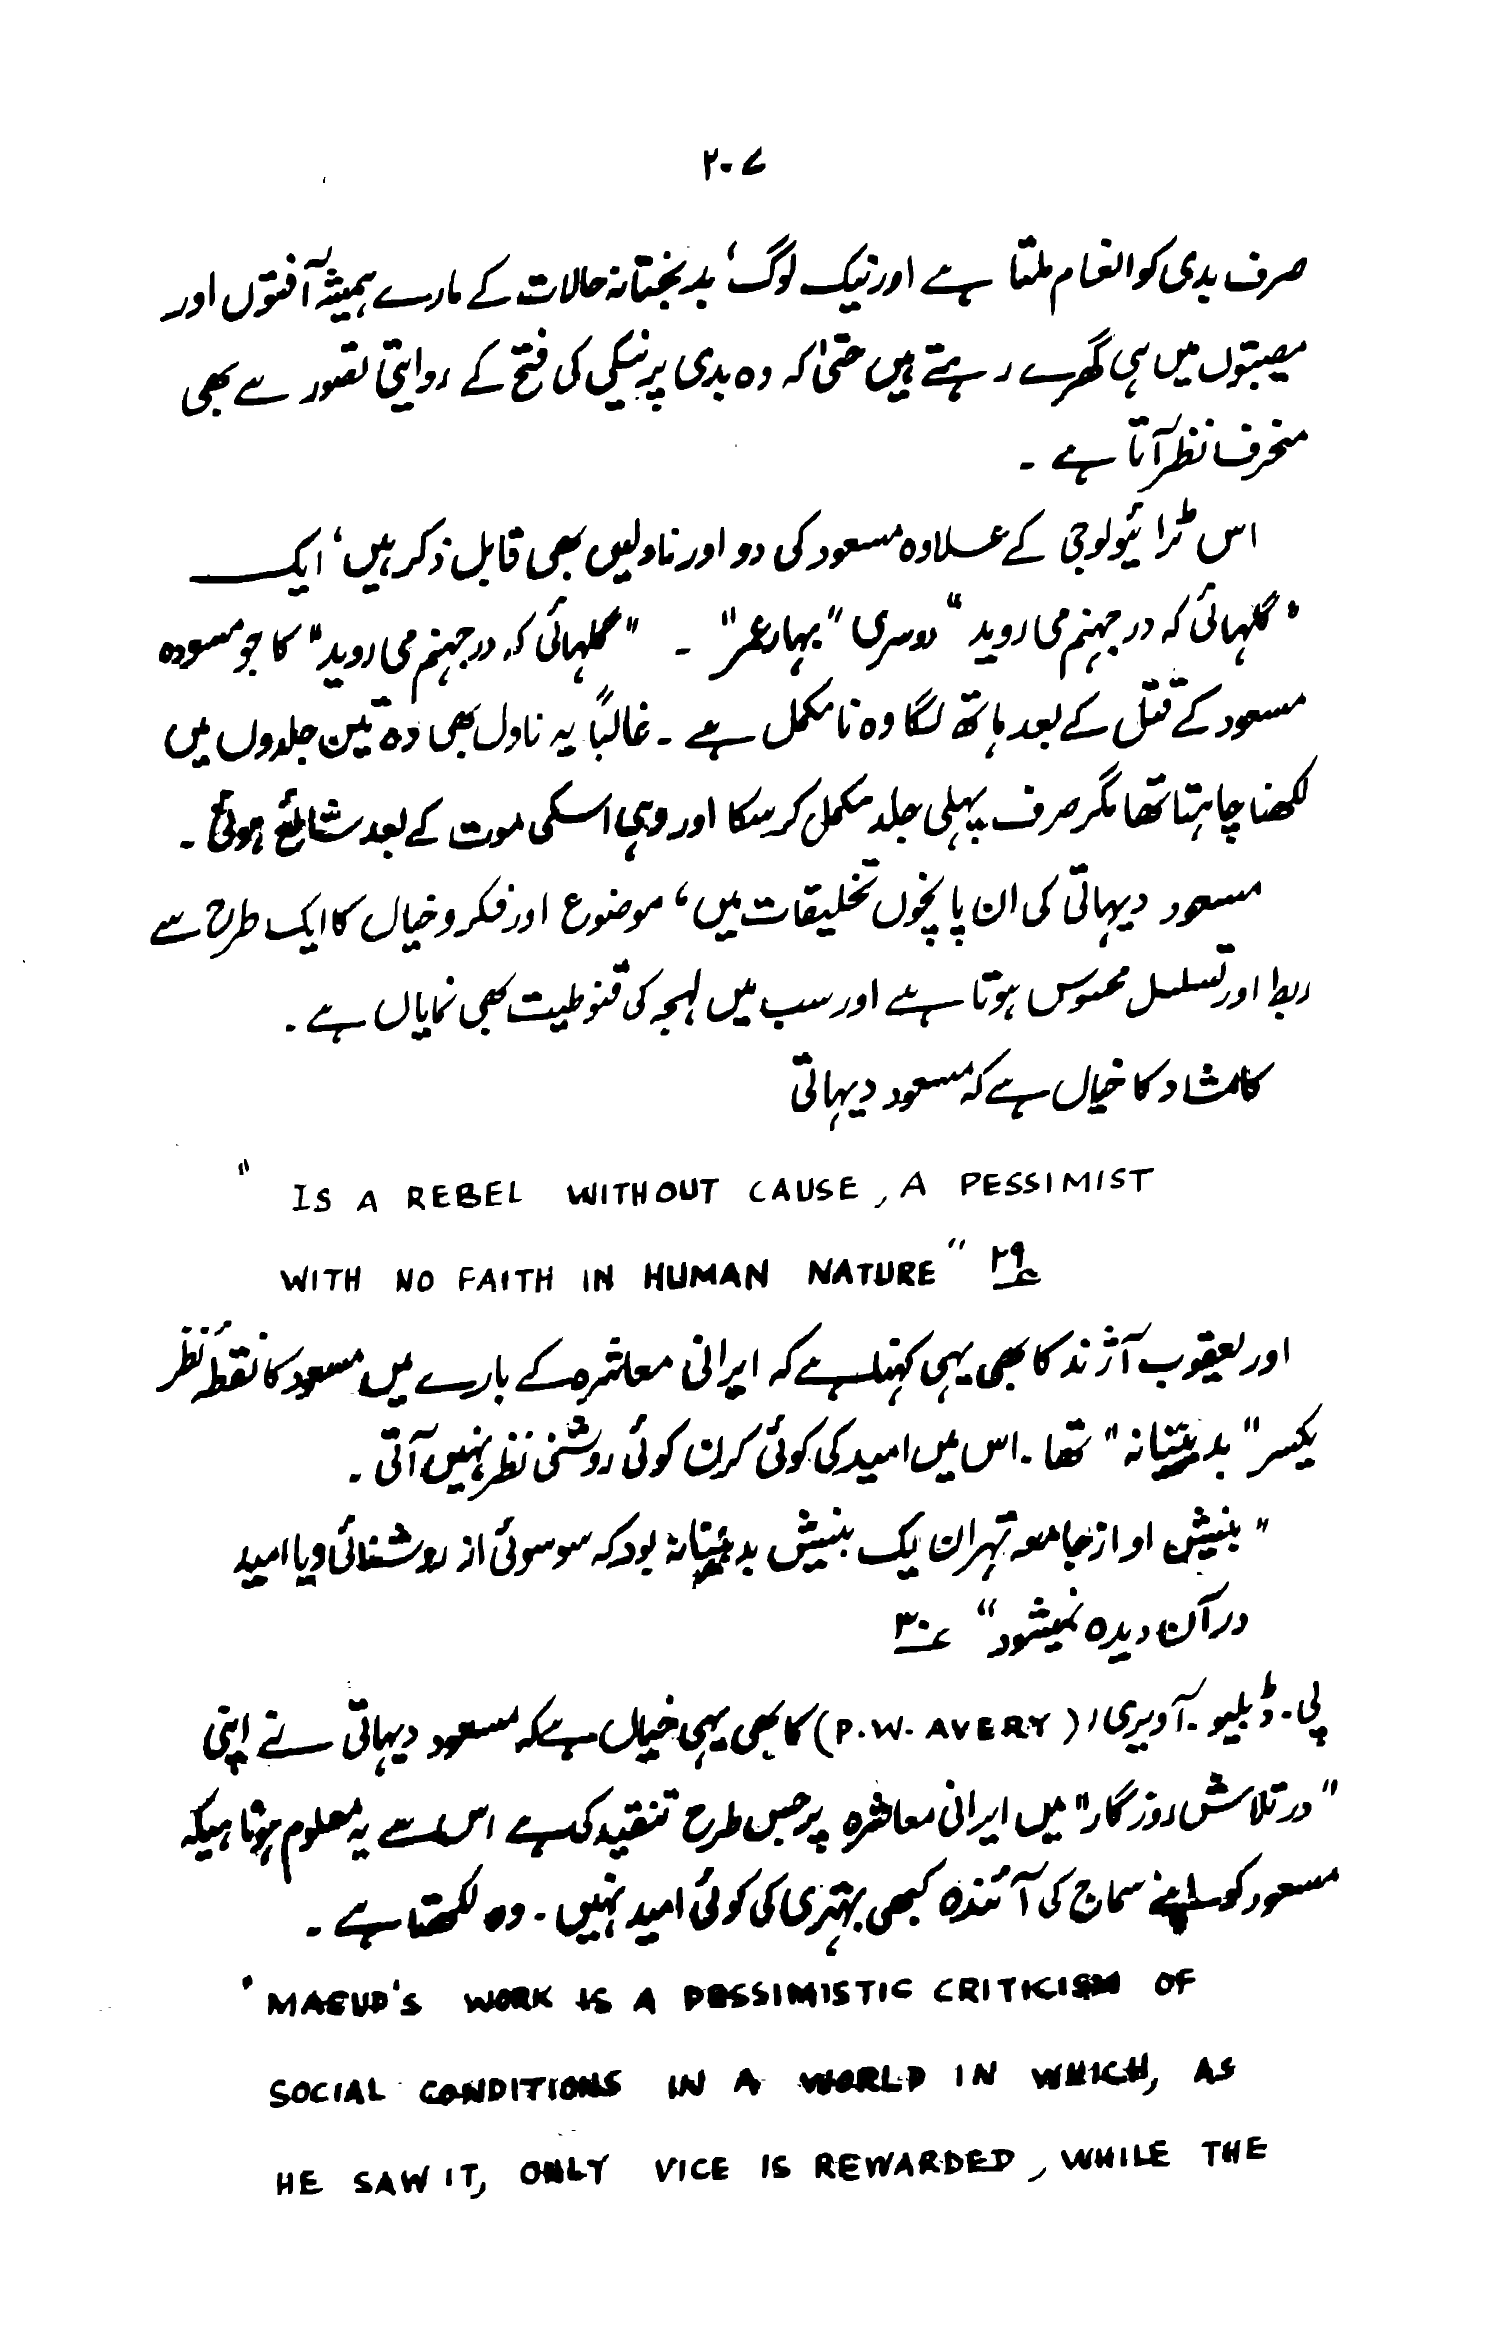 ۲۰۷
صرف بدی کو انعام ملتا ہے اور نیک لوگ، بدبختانہ حالات کے مارے ہمیشہ آفتوں اور
مصیبتوں میں ہی گھرے رہتے ہیں حتیٰ کہ وہ بدی پر نیکی کی فتح کے روایتی تصور سے بھی
منحرف نظر آتا ہے ۔
اس ٹرائیولوجی کے علاوہ مسعود کی دو اور ناولیں بھی قابل ذکر ہیں، ایک
"گلہائی کہ در جہنم می روید" دوسری "بہار عمر" ۔ "گلہائی کہ در جہنم می روید" کا جو مسودہ
مسعود کے قتل کے بعد ہاتھ لگا وہ نا مکمل ہے ۔ غالباً یہ ناول بھی وہ تین جلدوں میں
لکھنا چاہتا تھا مگر صرف پہلی جلد مکمل کر سکا اور وہی اسکی موت کے بعد شائع ہوئی ۔
مسعود دیہاتی کی ان پانچوں تخلیقات میں، موضوع اور فکر و خیال کا ایک طرح سے
ربط اور تسلسل محسوس ہوتا ہے اور سب میں لہجہ کی قنوطیت بھی نمایاں ہے ۔
کامشاد کا خیال ہے کہ مسعود دیہاتی
" IS A REBEL WITHOUT CAUSE, A PESSIMIST
WITH NO FAITH IN HUMAN NATURE " ۲۹؎
اور یعقوب آژند کا بھی یہی کہنا ہے کہ ایرانی معاشرہ کے بارے میں مسعود کا نقطۂ نظر
یکسر "بدبینانہ" تھا ۔ اس میں امید کی کوئی کرن کوئی روشنی نظر نہیں آتی ۔
"بینش او از جامعہ تہران یک بینش بدبینانہ بود کہ سوسوئی از روشنائی و یا امید
در آن دیدہ نمیشود" ۳۰؎
پی ۔ ڈبلیو ۔ آویری، (P.W. AVERY) کا بھی یہی خیال ہے کہ مسعود دیہاتی نے اپنی
"در تلاش روزگار" میں ایرانی معاشرہ پر جس طرح تنقید کی ہے اس سے یہ معلوم ہوتا ہیکہ
مسعود کو اپنے سماج کی آئندہ کبھی بہتری کی کوئی امید نہیں ۔ وہ لکھتا ہے ۔
" MASUD'S WORK IS A PESSIMISTIC CRITICISM OF
SOCIAL CONDITIONS IN A WORLD IN WHICH, AS
HE SAW IT, ONLY VICE IS REWARDED, WHILE THE